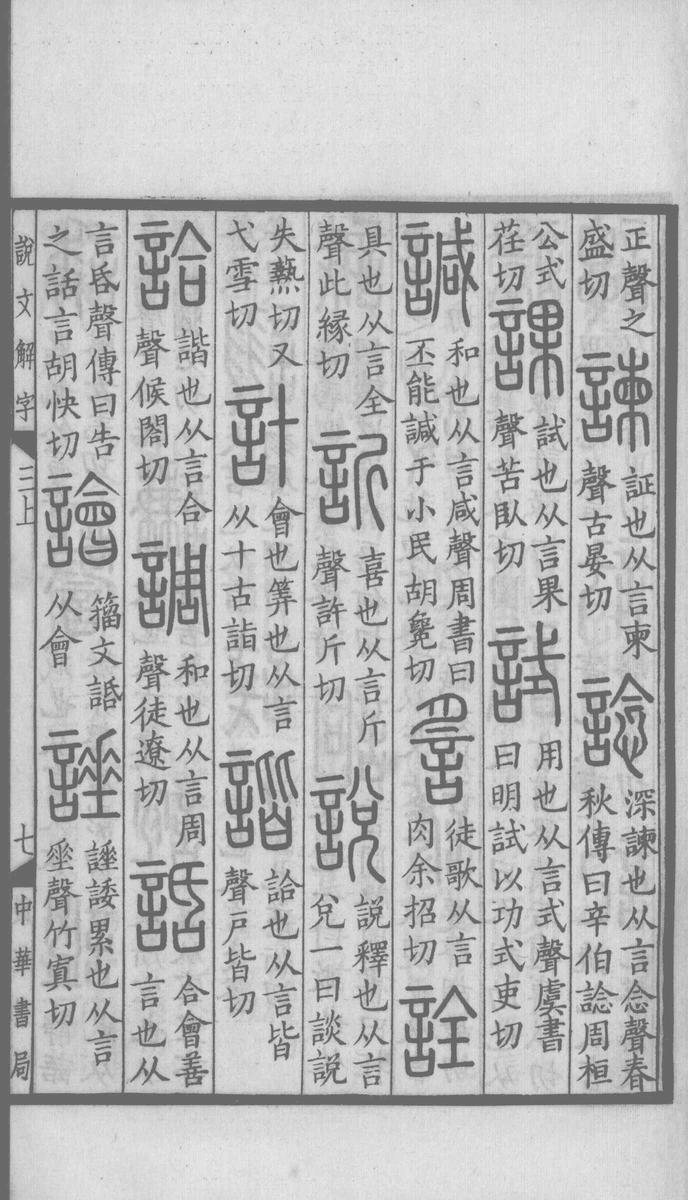 正聲之
盛切
諫
証也从言柬
聲古晏切
諗
深諫也从言念聲春
秋傳曰辛伯諗周桓
公式
荏切
課
試也从言果
聲苦臥切
試
用也从言式聲虞書
曰明試以功式吏切
諴
和也从言咸聲周書曰
丕能諴于小民胡毚切
䚻
徒歌从言
肉余招切
詮
具也从言全
聲此緣切
訢
喜也从言斤
聲許斤切
說
說釋也从言
兌一曰談說
失爇切又
弋雪切
計
會也筭也从言
从十古詣切
諧
詥也从言皆
聲戶皆切
詥
諧也从言合
聲候閤切
調
和也从言周
聲徒遼切
䛡
合會善
言也从
言昏聲傳曰告
之話言胡快切
譮
籒文䛡
从會
諈
諈諉累也从言
垂聲竹寘切
說文解字
三上
七
中華書局